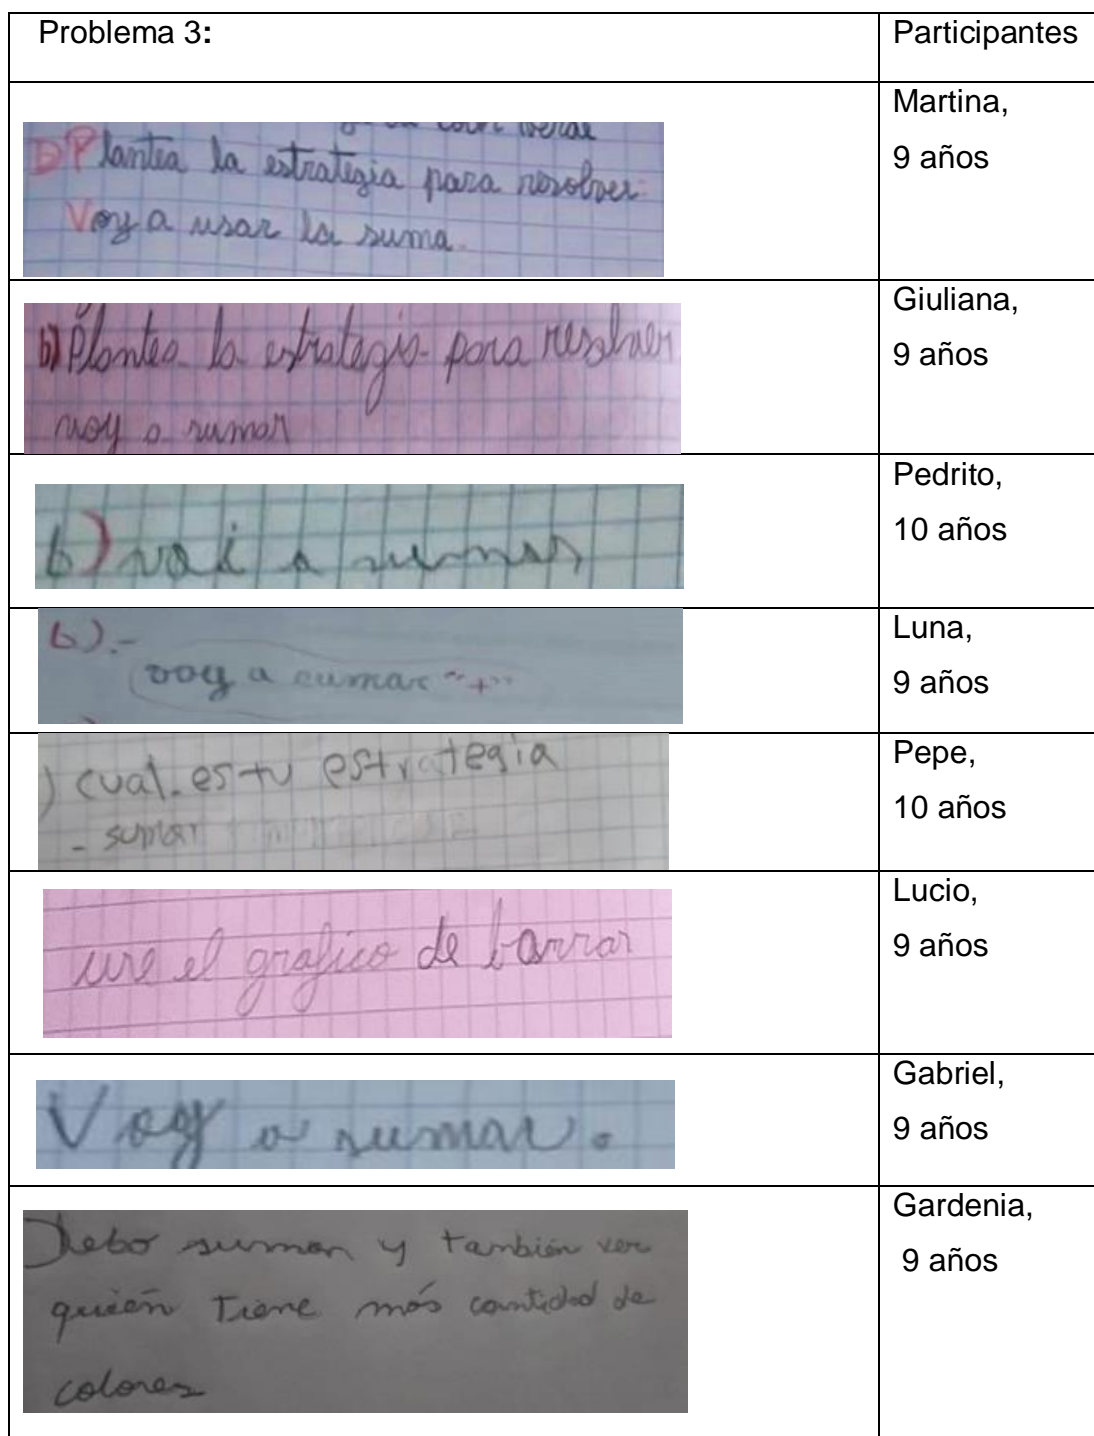 Problema 3:
Participantes
color verde
b) Plantea la estrategia para resolver:
Voy a usar la suma.
Martina,
9 años
b) Plantea la estrategia para resolver
voy a sumar
Giuliana,
9 años
b) voi a sumar
Pedrito,
10 años
b).-
voy a sumar "+"
Luna,
9 años
) cual es tu estrategia
- sumar
Pepe,
10 años
use el grafico de barrar
Lucio,
9 años
Voy a sumar.
Gabriel,
9 años
Debo sumar y también ver
quién Tiene más cantidad de
colores
Gardenia,
9 años